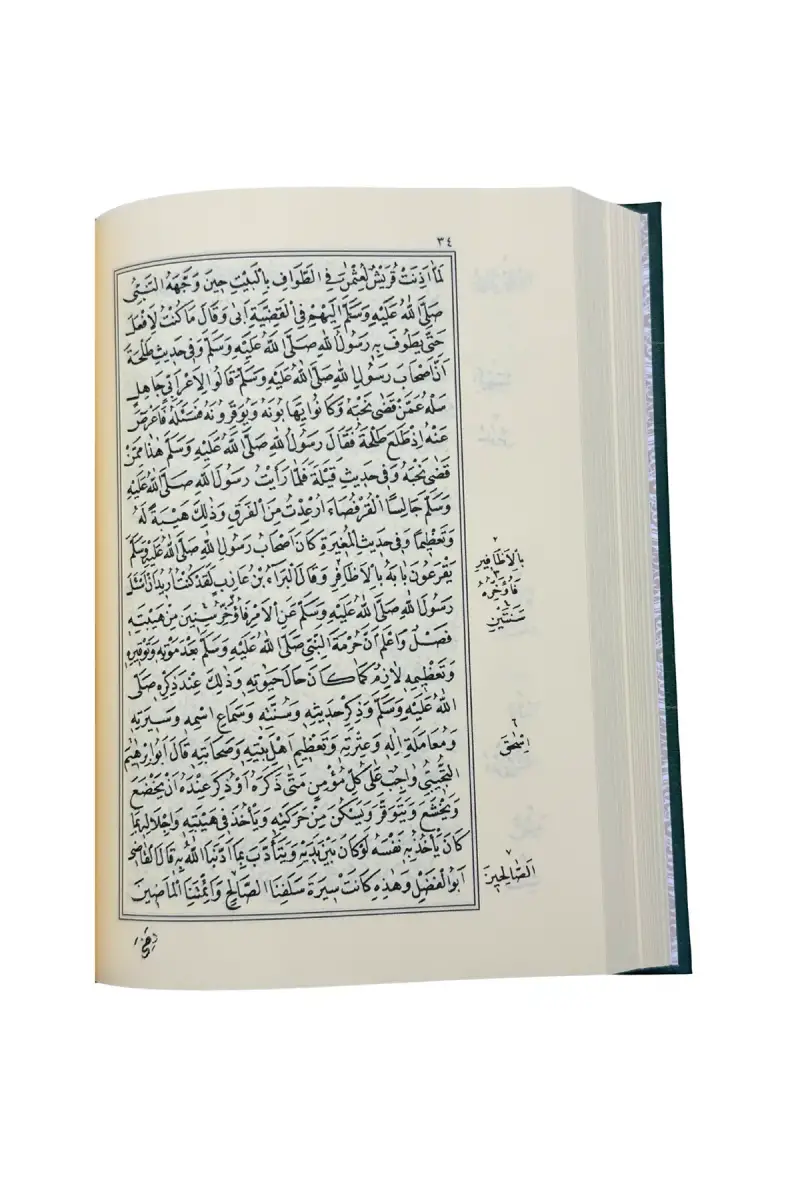 ٣٤
لَمَّا اَذِنَتْ قُرَيْشٌ لِعُثْمٰنَ فِى الطَّوَافِ بِالْبَيْتِ حِينَ وَجَّهَهُ النَّبِىُّ
صَلَّى اللّٰهُ عَلَيْهِ وَسَلَّمَ اِلَيْهِمْ فِى الْقَضِيَّةِ اَبٰى وَقَالَ مَا كُنْتُ لِاَفْعَلَ
حَتّٰى يَطُوفَ بِهِ رَسُولُ اللّٰهِ صَلَّى اللّٰهُ عَلَيْهِ وَسَلَّمَ وَفِى حَدِيثِ طَلْحَةَ
اَنَّ اَصْحَابَ رَسُولِ اللّٰهِ صَلَّى اللّٰهُ عَلَيْهِ وَسَلَّمَ قَالُوا لِاَعْرَابِىٍّ جَاهِلٍ
سَلْهُ عَمَّنْ قَضٰى نَحْبَهُ وَكَانُوا يَهَابُونَهُ وَيُوَقِّرُونَهُ فَسَئَلَهُ فَاَعْرَضَ
عَنْهُ اِذْ طَلَعَ طَلْحَةُ فَقَالَ رَسُولُ اللّٰهِ صَلَّى اللّٰهُ عَلَيْهِ وَسَلَّمَ هٰذَا مِمَّنْ
قَضٰى نَحْبَهُ وَفِى حَدِيثِ قَيْلَةَ فَلَمَّا رَاَيْتُ رَسُولَ اللّٰهِ صَلَّى اللّٰهُ عَلَيْهِ
وَسَلَّمَ جَالِسًا الْقُرْفُصَاءَ اُرْعِدْتُ مِنَ الْفَرَقِ وَذٰلِكَ هَيْبَةً لَهُ
وَتَعْظِيمًا وَفِى حَدِيثِ الْمُغِيرَةِ كَانَ اَصْحَابُ رَسُولِ اللّٰهِ صَلَّى اللّٰهُ عَلَيْهِ وَسَلَّمَ
يَقْرَعُونَ بَابَهُ بِالْاَظَافِرِ وَقَالَ الْبَرَاءُ بْنُ عَازِبٍ لَقَدْ كُنْتُ اُرِيدُ اَنْ اَسْئَلَ
رَسُولَ اللّٰهِ صَلَّى اللّٰهُ عَلَيْهِ وَسَلَّمَ عَنِ الْاَمْرِ فَاُؤَخِّرُ سِنِينَ مِنْ هَيْبَتِهِ
فَصْلٌ وَاعْلَمْ اَنَّ حُرْمَةَ النَّبِىِّ صَلَّى اللّٰهُ عَلَيْهِ وَسَلَّمَ بَعْدَ مَوْتِهِ وَتَوْقِيرَهُ
وَتَعْظِيمَهُ لَازِمٌ كَمَا كَانَ حَالَ حَيٰوتِهِ وَذٰلِكَ عِنْدَ ذِكْرِهِ صَلَّى
اللّٰهُ عَلَيْهِ وَسَلَّمَ وَذِكْرِ حَدِيثِهِ وَسُنَّتِهِ وَسَمَاعِ اسْمِهِ وَسِيرَتِهِ
وَمُعَامَلَةِ اٰلِهِ وَعِتْرَتِهِ وَتَعْظِيمِ اَهْلِ بَيْتِهِ وَصَحَابَتِهِ قَالَ اَبُو اِبْرٰهِيمَ
التُّجِيبِىُّ وَاجِبٌ عَلٰى كُلِّ مُؤْمِنٍ مَتٰى ذَكَرَهُ اَوْ ذُكِرَ عِنْدَهُ اَنْ يَخْضَعَ
وَيَخْشَعَ وَيَتَوَقَّرَ وَيَسْكُنَ مِنْ حَرَكَتِهِ وَيَأْخُذَ فِى هَيْبَتِهِ وَاِجْلَالِهِ بِمَا
كَانَ يَأْخُذُ بِهِ نَفْسَهُ لَوْ كَانَ بَيْنَ يَدَيْهِ وَيَتَأَدَّبَ بِمَا اَدَّبَنَا اللّٰهُ بِهِ قَالَ الْقَاضِى
اَبُو الْفَضْلِ وَهٰذِهِ كَانَتْ سِيرَةَ سَلَفِنَا الصَّالِحِ وَاَئِمَّتِنَا الْمَاضِينَ
رَضِىَ
٢
بِالْاَظَافِيرِ
٣
فَاُؤَخِّرُهُ
٤
سَنَتَيْنِ
٦
اِسْحٰقَ
٧
الصَّالِحِينَ